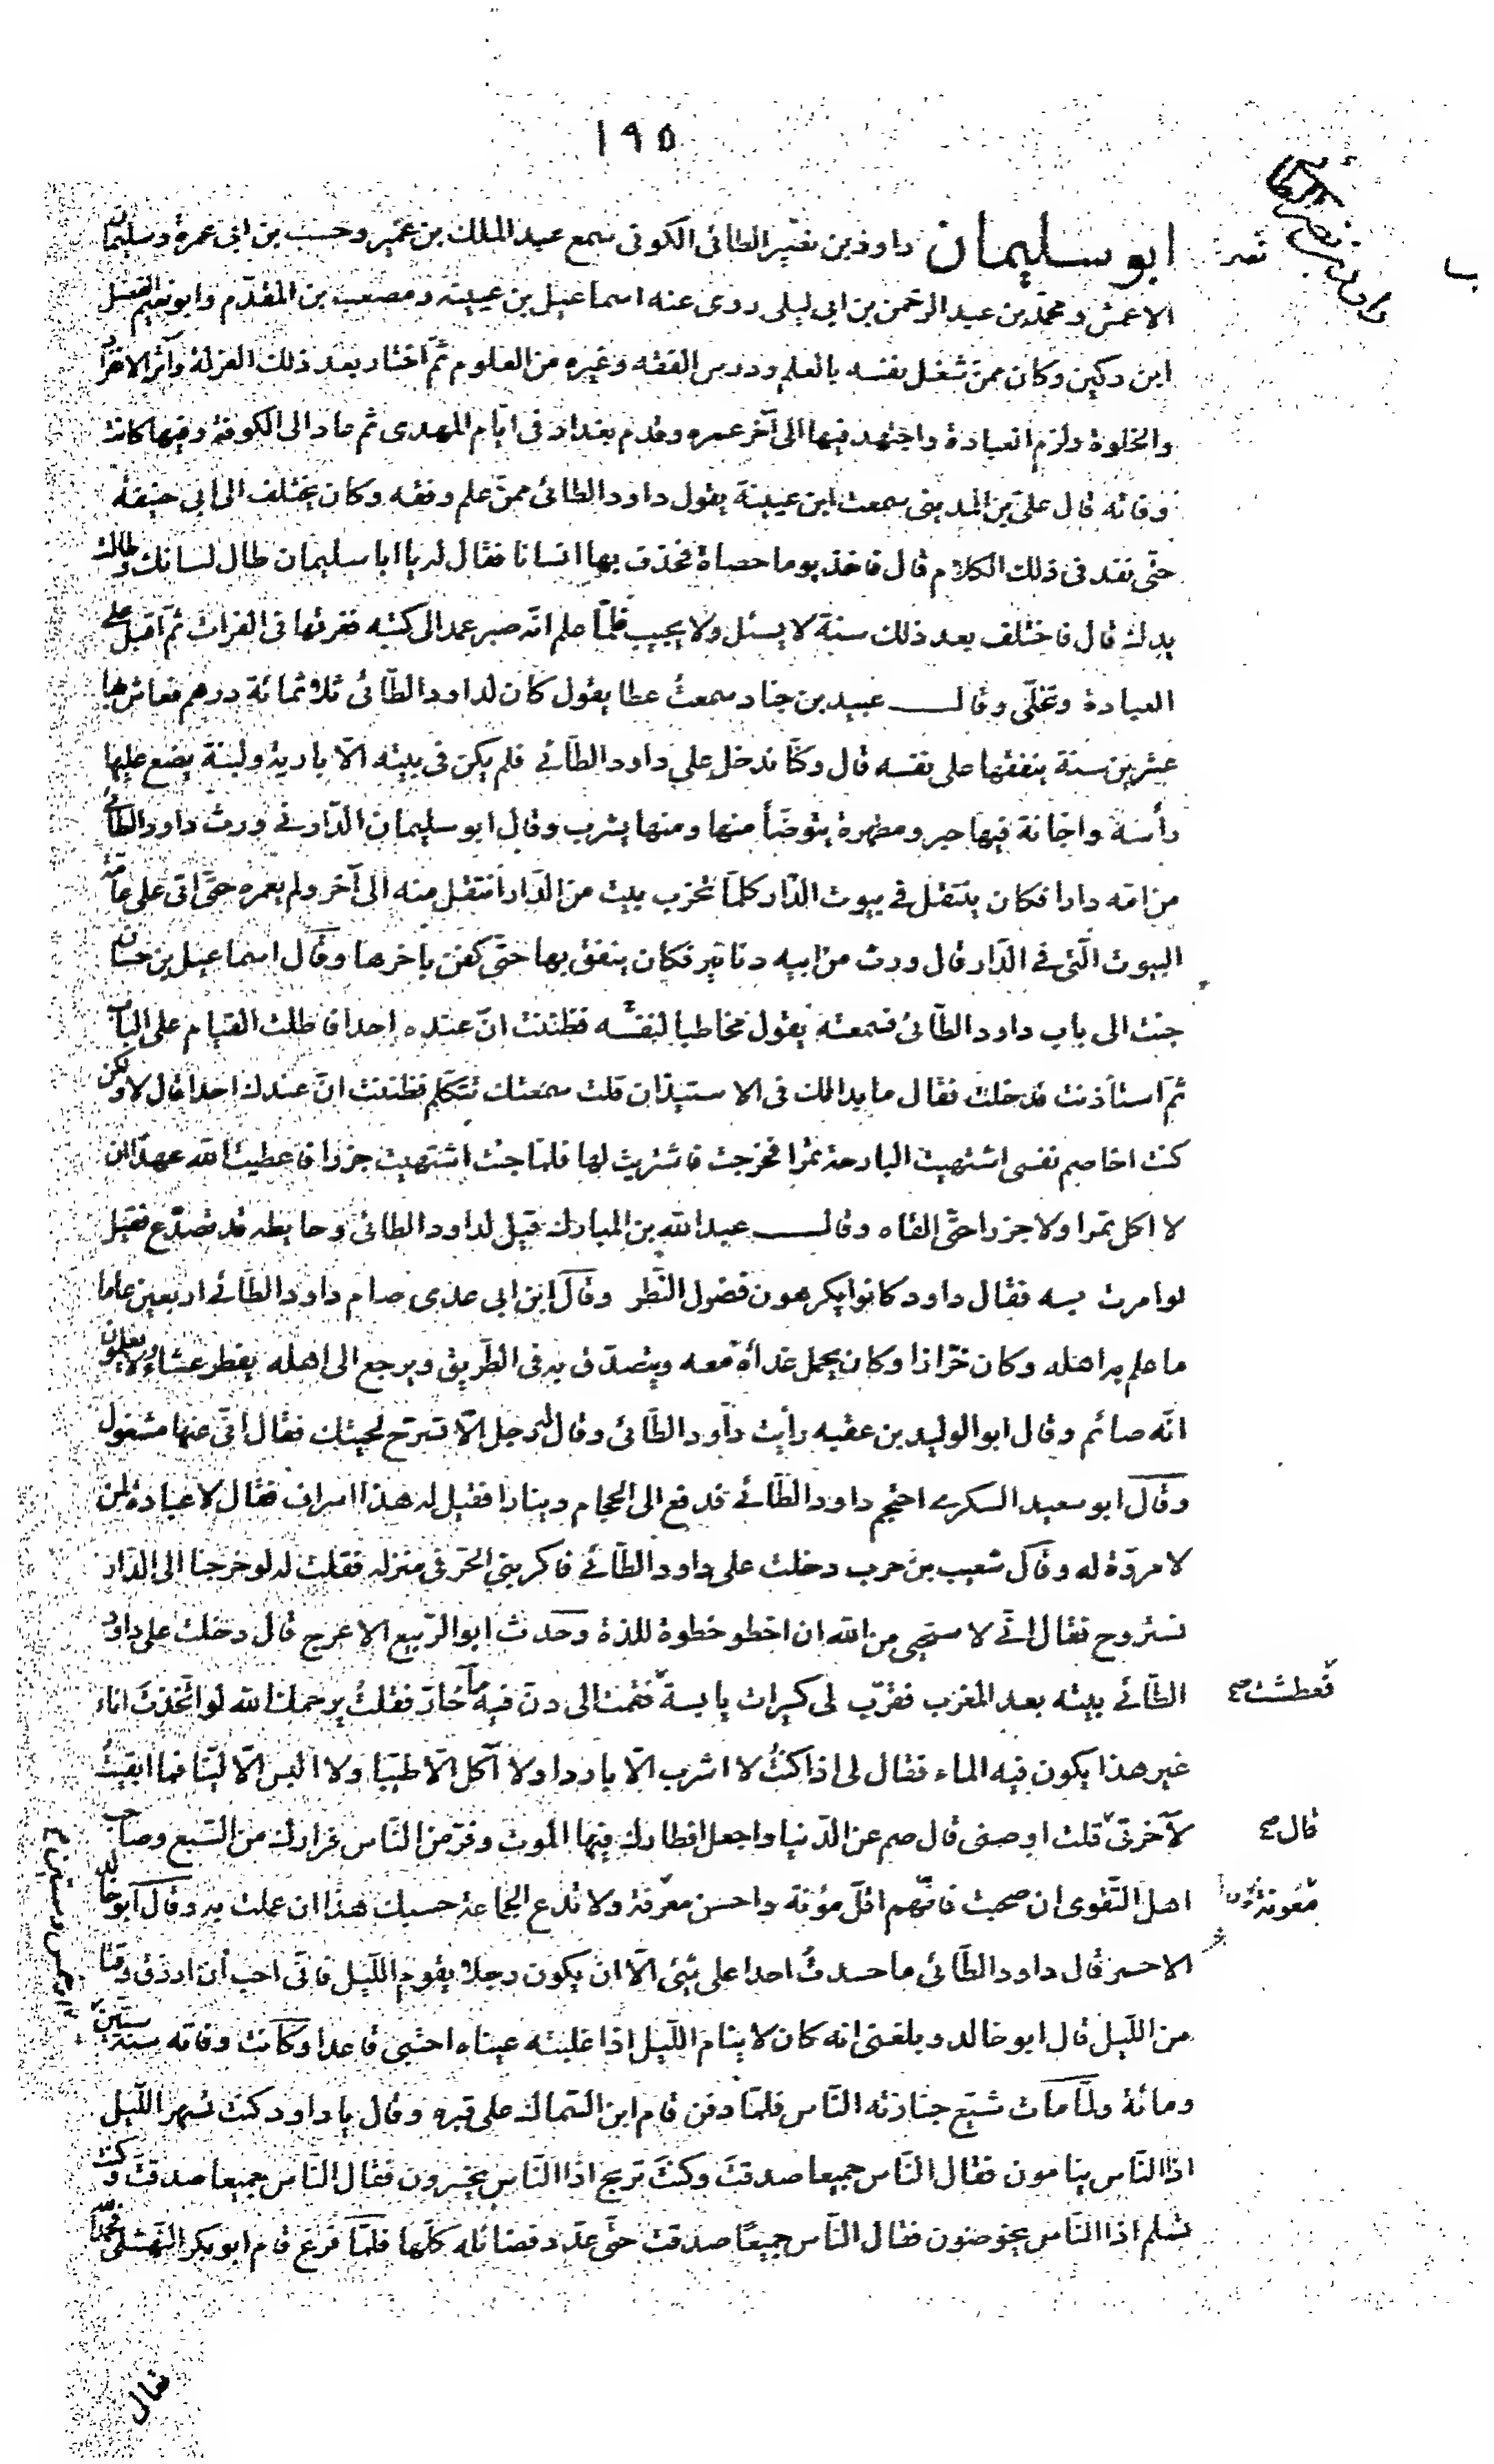 ١٩٥
ابو سليمان داود بن نصير الطائى الكوفى سمع عبد الملك بن عمير وحسب بن ابى عمرة وسليمان
الاعمش ومحمد بن عبد الرحمن بن ابى ليلى روى عنه اسماعيل بن عيينه ومصعب بن المقدّم وابو نعيم الفضل
ابن دكين وكان ممن شغل نفسه بالعلم ودرس الفقه وغيره من العلوم ثمّ اختار بعد ذلك العزلة وآثر الانفراد
والخلوة ولزم العبادة واجتهد فيها الى آخر عمره وقدم بغداد فى ايّام المهدى ثم عاد الى الكوفة وفيها كانت
وفاته قال علىّ بن المدينى سمعت ابن عيينة يقول داود الطائى ممّن علم وفقه وكان يختلف الى ابى حنيفة
حتّى نفد فى ذلك الكلام قال فاخذ يوما حصاة فخذف بها انسانا فقال له يا ابا سليمان طال لسانك وطالت
يدك قال فاختلف بعد ذلك سنة لا يسئل ولا يجيب فلمّا علم انّه صبر عمد الى كتبه فغرقها فى الفرات ثمّ اقبل على
العبادة وتخلّى وقال عبيد بن جناد سمعتُ عطا يقول كان لداود الطّائى ثلاثمائة درهم فعاش بها
عشرين سنة ينفقها على نفسه قال وكنّا ندخل على داود الطّائى فلم يكن فى بيته الّا بارية ولبنة يضع عليها
رأسه واجّانة فيها خبز ومطهرة يتوضّأ منها ومنها يشرب وقال ابو سليمان الدّارنى ورث داود الطّائى
من امّه دارا فكان يتنقل فى بيوت الدّار كلما تخرّب بيت من الدّار انتقل منه الى آخر ولم يعمره حتّى اتى على عامّة
البيوت الّتى فى الدّار قال ورث من ابيه دنانير فكان ينفق بها حتّى كفن بآخرها وقال اسماعيل بن حسان
جئت الى باب داود الطّائى فسمعته يقول مخاطبا لنفسه فظننت انّ عنده احدا فاطلت القيام على الباب
ثمّ استأذنت فدخلت فقال ما بدا لك فى الاستيذان قلت سمعتك تتكلّم فظننت انّ عندك احدا قال لا ولكن
كنت اخاصم نفسى اشتهيت البارحة تمرا فخرجت فاشتريت لها فلمّا جئت اشتهيت جزرا فاعطيت الله عهدا ان
لا اكل تمرا ولا جزرا حتّى القاه وقال عبد الله بن المبارك قيل لداود الطائى وحايطه قد تصدّع فقيل
لو امرت به فقال داود كانوا يكرهون فضول النّظر وقال ابن ابى عدى صام داود الطّائى اربعين عاما
ما علم به اهله وكان خزّازا وكان يحمل غداه معه ويتصدّق به فى الطّريق ويرجع الى اهله يفطر عشاء ولا يعلمون
انّه صائم وقال ابو الوليد بن عقبه رأيت داود الطّائى وقال له رجل الّا تسرّح لحيتك فقال انّى عنها مشغول
وقال ابو سعيد السكرى احتجم داود الطّائى فدفع الى الحجام دينارا فقيل له هذا اسراف فقال لا عبادة لمن
لا مروّة له وقال شعيب بن حرب دخلت على داود الطّائى فاكربنى الحرّ فى منزله فقلت له لو خرجنا الى الدّار
نستروح فقال انّى لاستحى من الله ان اخطو خطوة للذة وحدث ابو الرّبيع الاعرج قال دخلت على داود
الطّائى بيته بعد المغرب فقرّب لى كسرات يابسة فقمت الى دنّ فيه ماء حارّ فقلتُ يرحمك الله لو اتّخذتَ اناء
فعطشت صح
غير هذا يكون فيه الماء فقال لى اذا كنتُ لا اشرب الّا باردا ولا آكل الّا طيّبا ولا البس الّا ليّنا فما ابقيتُ
لآخرتى قلت اوصنى قال صم عن الدّنيا واجعل افطارك فيها الموت وفرّ من النّاس فرارك من السّبع وصاحب
قال صح
اهل التّقوى ان صحبت فانّهم اقلّ مؤنة واحسن معرفة ولا تدع الجماعة حسبك هذا ان عملت به وقال ابو خالد
معونة
الاحمر قال داود الطّائى ما حسدتُ احدا على شىء الّا ان يكون رجلا يقوم اللّيل فانّى احب أن ارزق وقتا
من اللّيل قال ابو خالد وبلغنى انه كان لا ينام اللّيل اذا غلبته عيناه احتبى قاعدا وكانت وفاته سنة ستّين
ومائة ولمّا مات شيّع جنازته النّاس فلمّا دفن قام ابن السّماك على قبره وقال يا داود كنت تسهر اللّيل
اذا النّاس ينامون فقال النّاس جميعا صدقتَ وكنتَ تربح اذا النّاس يخسرون فقال النّاس جميعا صدقتَ وكنت
تسلم اذا النّاس يخوضون فقال النّاس جميعًا صدقت حتّى عدّد فضائله كلّها فلمّا فرغ قام ابو بكر النّهشلى فحمد الله
فقال